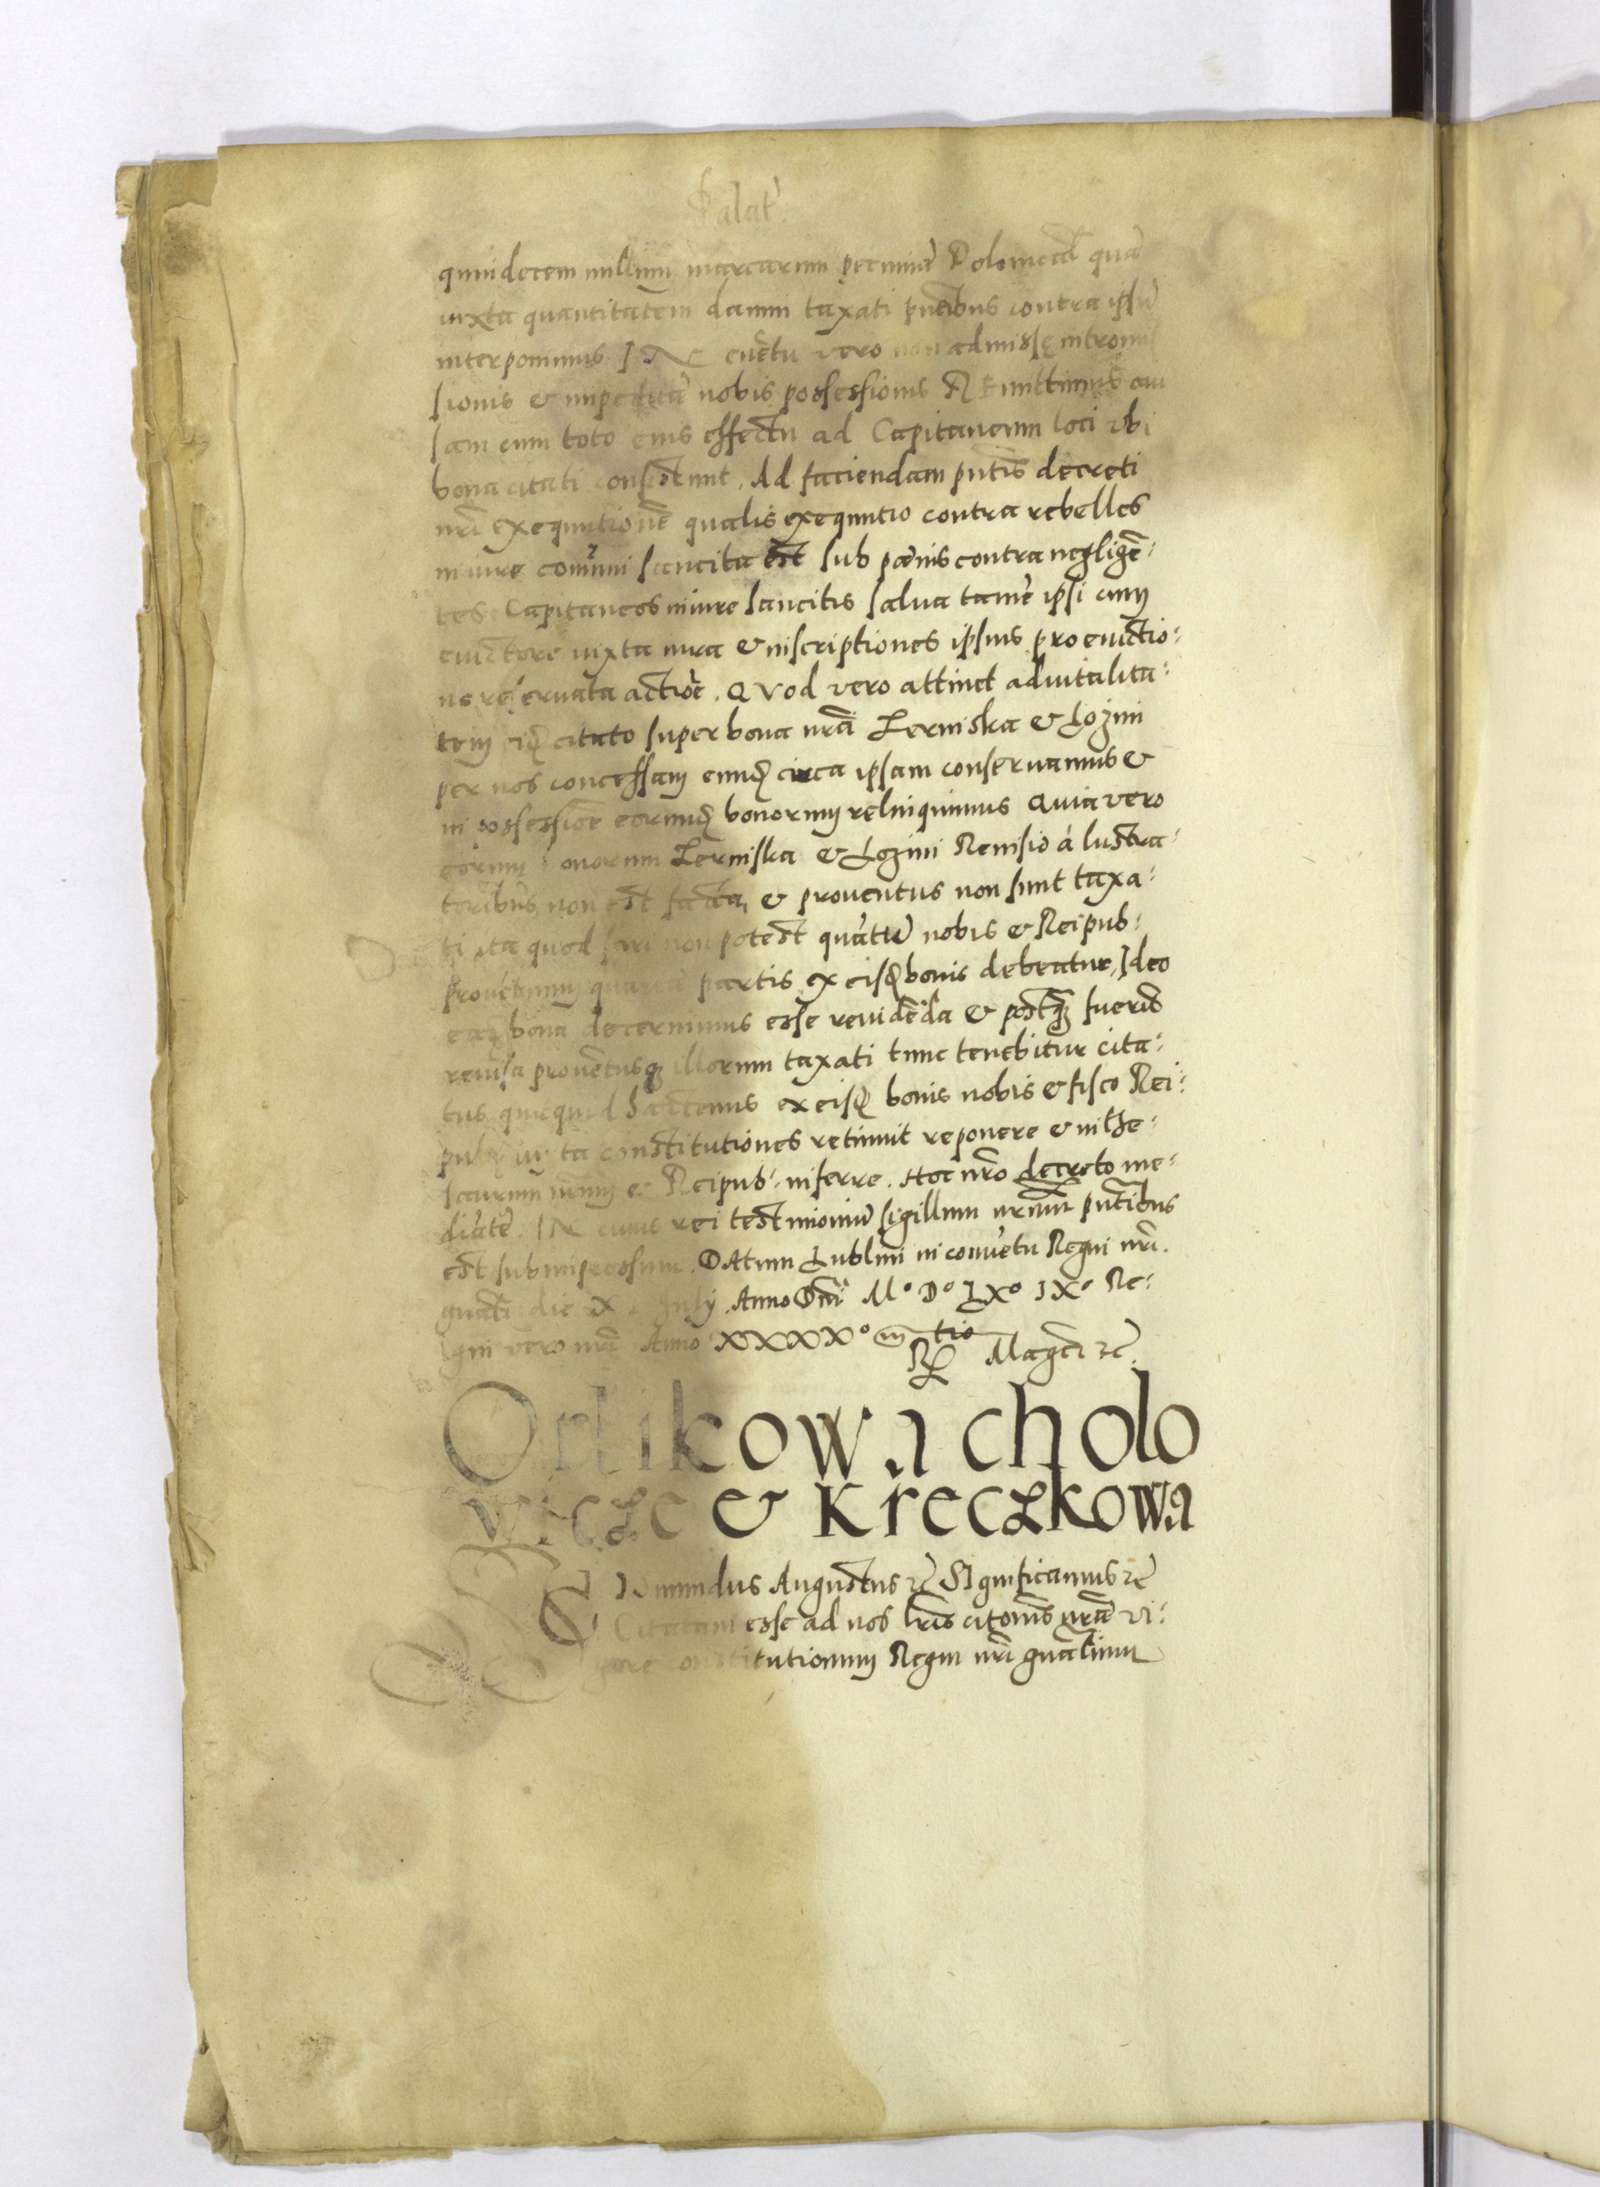 Palat
quindecem millium marcarum pecuniæ Polonical quā
iuxta quantitatem damni taxati pñtibus contra ipsū
interponimus IN euētu vero non admissę intromis
sionis & impeditæ nobis possessionis REmittimus cau
sam cum toto eius effectu ad Capitaneum loci vbi
bona citati consistunt. Ad faciendam pñtis decreti
nri exequutionē qualis exequutio contra rebelles
in iure comuni sancita est sub pænis contra negligē:
tes Capitaneos in iure sancitis salua tamē ipsi cum
euictore iuxta iura & inscriptiones ipsius pro euictio:
ne reseruata actiōe. QVod vero attinet ad vitalita:
tem citato super bona nra Lerniska & Lozini
per nos concessam eundꝫ circa ipsam conseruamus &
in possessione eorundꝫ bonorum relinquimus Quia vero
eorum bonorum Lerniska & Lozini Reuisio á lustra:
toribus non est facta, & prouentus non sunt taxa:
ti ita quod sciri non potest quātū nobis & Reipub:
prouētuum quartæ partis ex eisdꝫ bonis debeatur, Ideo
eadꝫ bona decernimus esse reuidēda & postqꝫ fuerīt
reuisa prouētusqꝫ illorum taxati tunc tenebitur cita:
tus quicquid hactenus ex eisdꝫ bonis nobis & fisco Rei:
pub: iuxta constitutiones retinuit reponere & in the:
saurum nrum & Reipub: inferre. Hoc nro decreto me:
diāte. IN cuius rei testimoniū sigillum nrum pñtibus
est subimpressum. DAtum Lublini in conuētu Regni nri.
gnali die X July. Anno Dni Mº Dº LXº IXº Re:
gni vero nri Anno XXXXº
Magci &c.
Ortikowa cholo
wicze & Kreczkowa
SIgismundus Augustus &c SIgnificamus &c
Citatam esse ad nos lris citonis nra vi:
gore constitutionum Regni nri gnalium